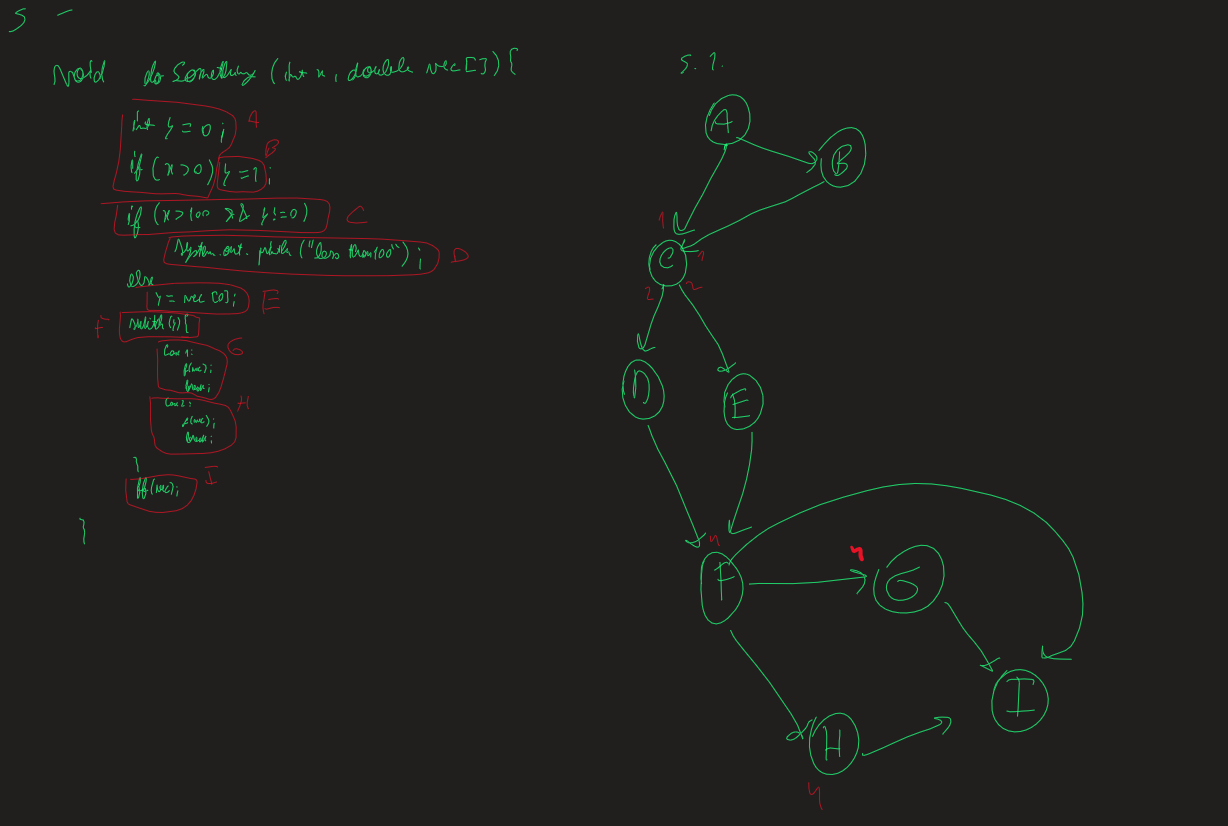 5 -
void doSomething (int x, double vec[]) {
int y = 0; A
if (x>0) y=1; B
if (x>100 && y!=0) C
System.out.println("less than 100"); D
else
y = vec[0]; E
F switch(y){
Case 1: G
f(vec);
break;
Case 2: H
f(vec);
break;
}
ff(vec); I
}
5.1.
A
B
1
C 1
2 2
D
E
4 4
F G
I
H
4